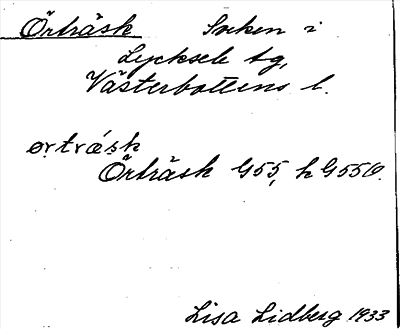 Örträsk Socken i
Lycksele tg,
Västerbottens l.
ørtrásk
Örträsk G55, h G556.
Lisa Lidberg 1933